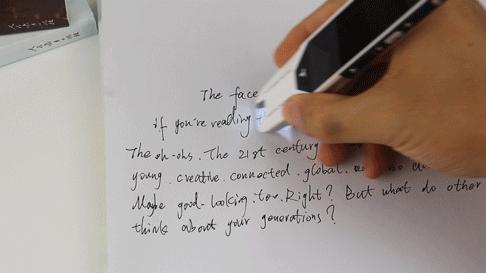 The face
if you're reading
The oh-ohs. The 21st century
young. creative. connected. global.
Maybe good-looking. too. Right? But what do other
think about your generations?